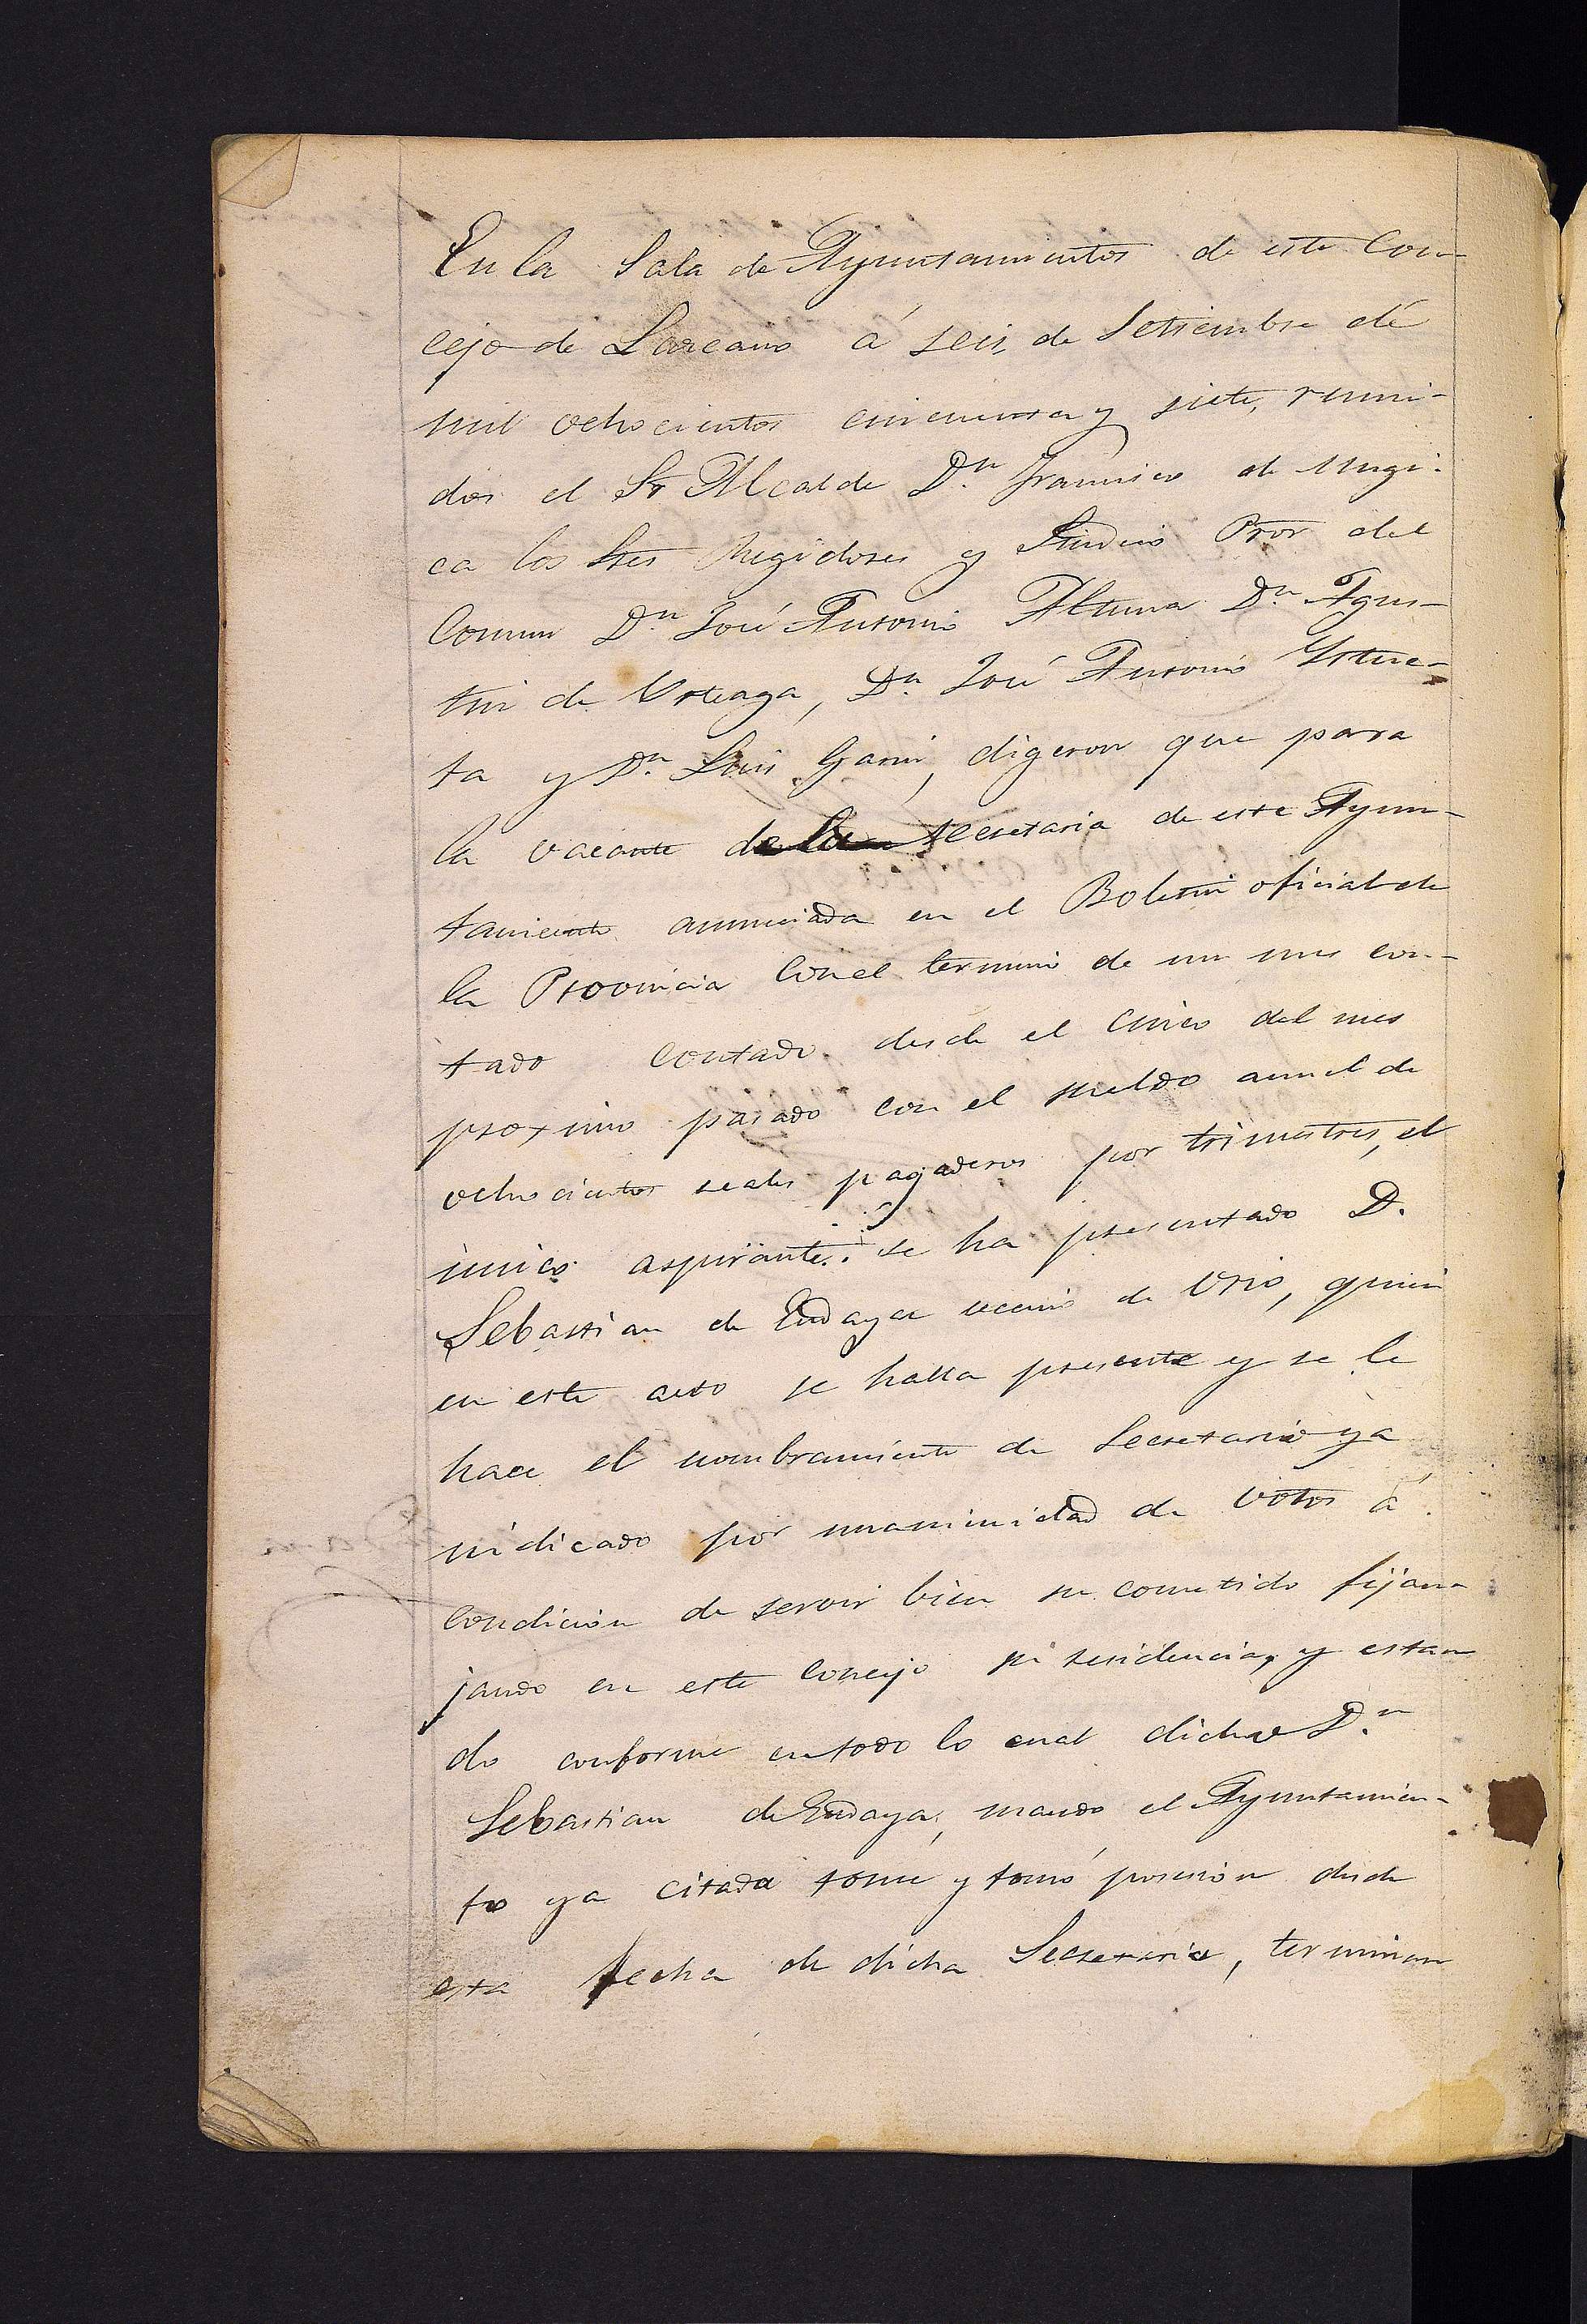 En la Sala de Ayuntamientos de este Con-
cejo de Lazcano á seis de Setiembre de
mil ochocientos cincuenta y siete, reuni-
dos el Sr Alcalde Dn Francisco de Mugi-
ca los Sres Regidores y Sindico Pror del
Comun Dn José Antonio Altuna Dn Agus-
tin de Urteaga, Dn José Antonio Yztue-
ta y Dn Luis Garin, digeron que para
la vacante de la secretaria de este Ayun-
tamiento anunciada en el Boletin oficial de
la Provincia con el termino de un mes con-
tado contado desde el cinco del mes
proximo pasado con el sueldo anual de
ochocientos reales pagaderos por trimestres, el
unico aspirante se ha presentado D.
Sebastian de Endaya vecino de Orio, quien
en este acto se halla presente y se le
hace el nombramiento de Secretario ya
indicado por unanimidad de votos á
condicion de servir bien su cometido fijan-
jando en este Concejo su residencia, y estan
do conforme en todo lo cual dicho Dn
Sebastian de Endaya, mando el Ayuntamien-
to ya citada tome y tomó posesion desde
esta fecha de dicha Secretaria, terminan